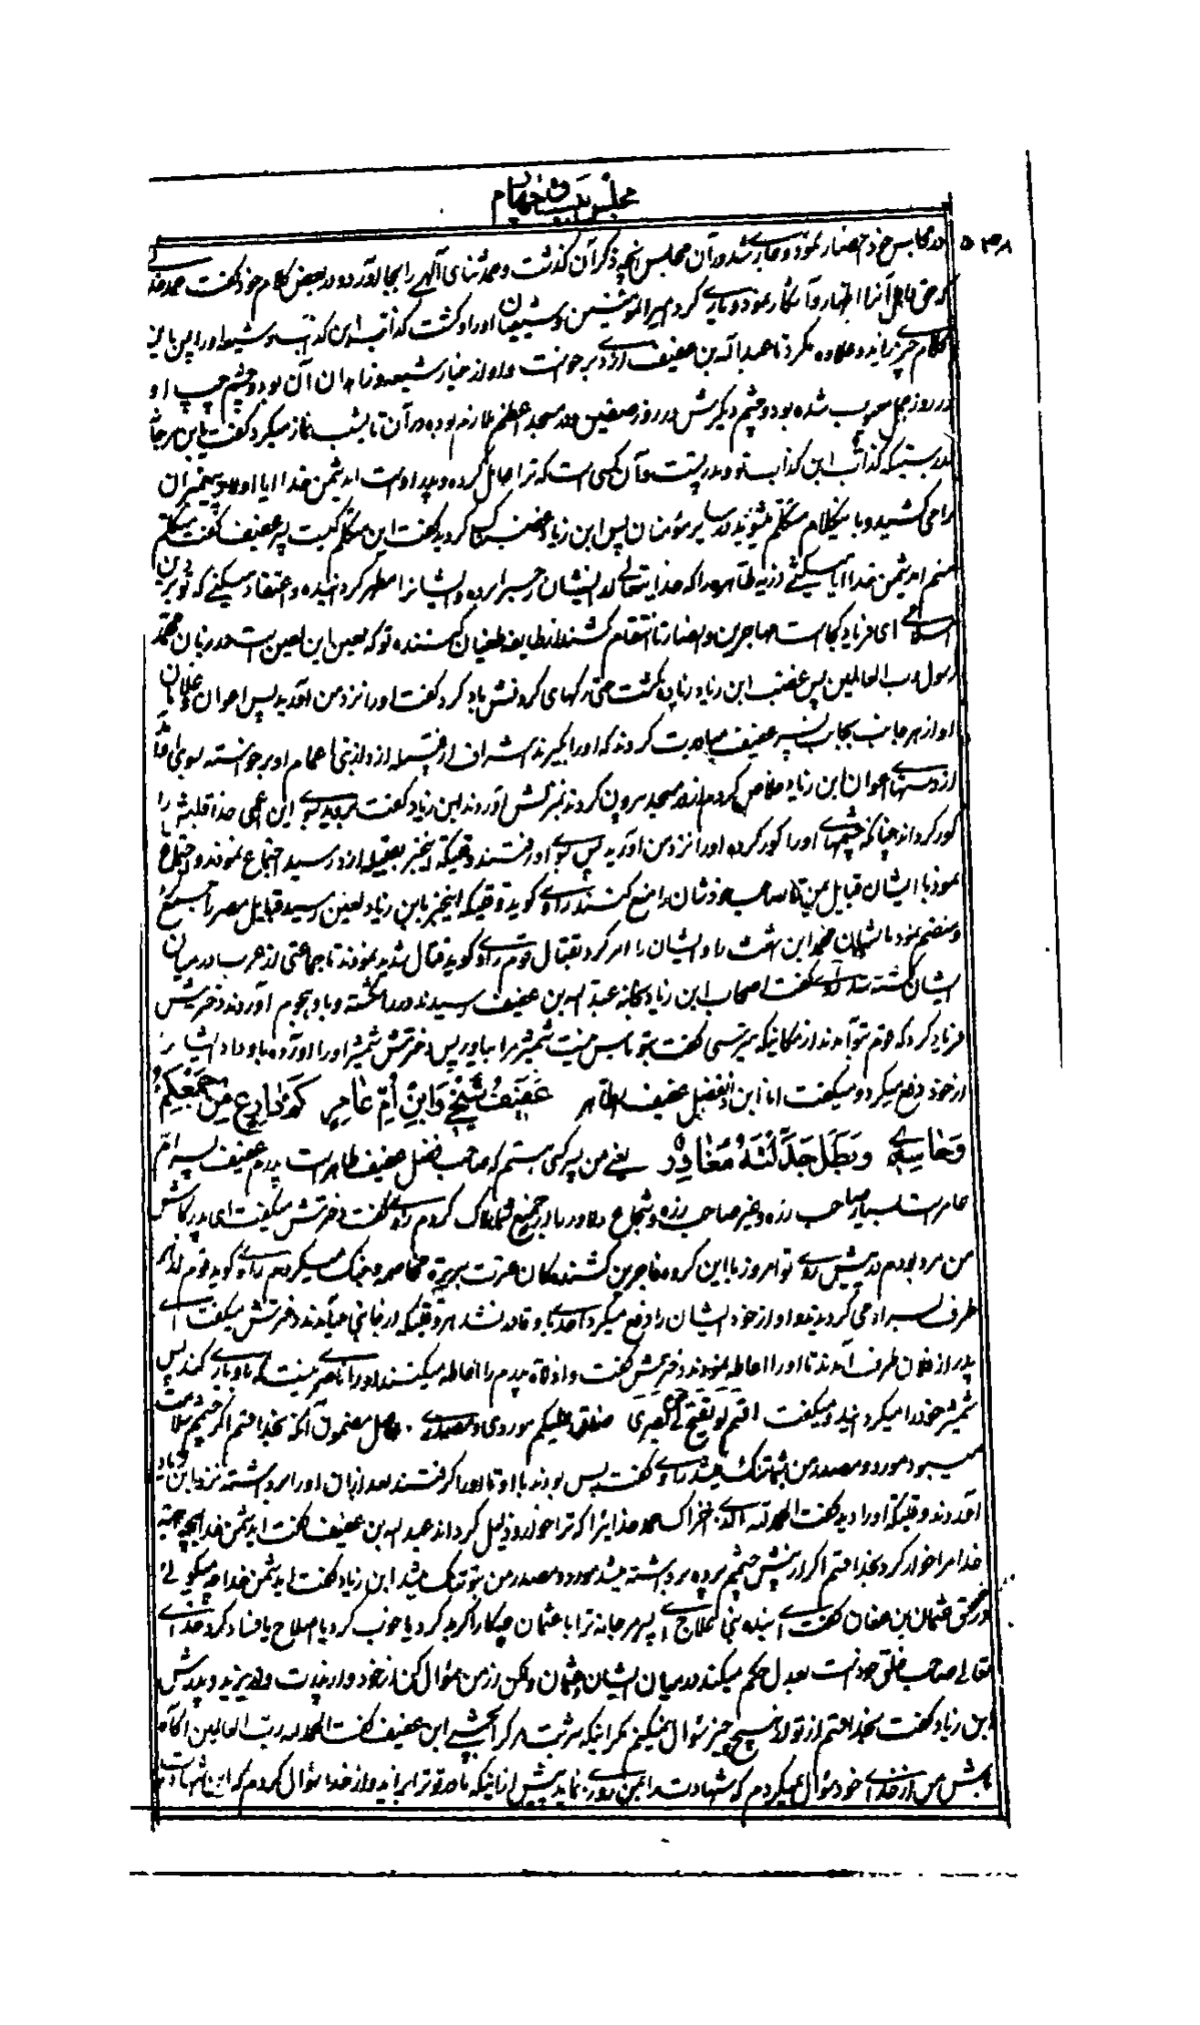 مجلس بیست و چهارم
۵۳۸
در مجلس خود احضار نمود و جاری شد در آن مجلس آنچه ذکر آن گذشت و حمد و ثنای الهی را بجا آورد و در بعض کلام خود گفت حمد خدائی
که حق و اهل آنرا اظهار و آشکار نمود و یاری کرد امیرالمؤمنین و شیعیان او را و کشت کذاب ابن کذاب و شیعه او را پس باین
کلام چیزی زیاده و علاوه نکرد تا عبدالله بن عفیف ازدی برخواست و او از خیار شیعه و زاهدان آن بود و چشم چپ او
در روز جمل معیوب شده بود و چشم دیگرش در روز صفین و در مسجد اعظم ملازم بود و در آن تا بشب نماز میکرد گفت یابن مرجانه
بدرستیکه کذاب ابن کذاب تو و پدر تست و آن کسی است که ترا عامل کرده و پدر اوست ایدشمن خدا آیا اولاد پیغمبران
را می کشید و باینکلام متکلم میشوید در منابر مؤمنان پس ابن زیاد غضبناک گردید گفت این متکلم کیست پسر عفیف گفت متکلم
منم ایدشمن خدا آیا میکشی ذریه طاهره را که خدایتعالی از ایشان رجس را برده و ایشانرا مطهر گردانیده و اعتقاد میکنی که تو بر دین
اسلامی ای فریاد کجا است مهاجرین و انصار تا انتقام کشند از طایفه طغیان کننده تو که لعین ابن لعین است در زبان محمد
رسول رب العالمین پس غضب ابن زیاد زیاده گشت حتی رگهای گردنش باد کرد گفت او را نزد من آورید پس اعوان و غلامان
او از هر جانب بجانب پسر عفیف مبادرت کردند که او را بگیرند اشراف از قبیله ازد از بنی اعمام او برخواسته او را
از دستهای اعوان ابن زیاد خلاص کردند و از در مسجد بیرون کردند بمنزلش آوردند ابن زیاد گفت بروید بسوی این اعمی خدا قلبش را
کور گرداند چنانکه چشمهای او را کور کرده او را نزد من آورید پس بسوی او رفتند وقتیکه اینخبر بقبیله ازد رسید اجتماع نمودند و اجتماع
نمود با ایشان قبایل یمن تا صاحب خودشان را منع کنند راوی گوید وقتیکه اینخبر بابن زیاد لعین رسید قبایل مضر را جمع
و منضم نمود با ایشان محمد ابن اشعث را و ایشان را امر کرد بقتال قوم راوی گوید قتال شدید نمودند تا جماعتی از عرب در میان
ایشان کشته شد راوی گفت اصحاب ابن زیاد بخانه عبدالله بن عفیف رسیدند در را شکسته و باو هجوم آوردند دخترش
فریاد کرد که قوم تو آمدند از مکانیکه میترسی گفت بتو باسی نیست شمشیر مرا بیاور پس دخترش شمشیر او را آورده باو داد ایشانرا
از خود دفع میکرد و میگفت انا ابن ذی الفضل عفیف الطاهر عَفیفُ شَیْخی وَابْنُ اُمِّ عامِرٍ کَمْ دارِعٍ مِنْ جَمْعِکُمْ
وَحاسِرٍ وَبَطَلٍ جَدَّلْتُهُ مُغادِرٍ یعنی من پسر کسی هستم که صاحب فضل عفیف طاهر است پدرم عفیف پسر ام
عامر است بسیار صاحب زره و غیر صاحب زره و شجاع دلاور را از جمع شما هلاک کردم راوی گفت دخترش میگفت ای پدر کاش
من مرد بودم در پیش روی تو امروز با این گروه فاجرین کشندگان عترت بررة مخاصمه و جنگ میکردم راوی گوید قوم از هر
طرف بسر او می گردیدند و او از خود ایشان را دفع میکرد احدی باو قادر نشد هر وقتیکه از جانبی میآمدند دخترش میگفت ای
پدر از فلان طرف آمدند تا او را احاطه نمودند دخترش گفت واذلاه پدرم را احاطه میکنند او را ناصری نیست که باو یاری کند پس
شمشیر خود را میگردانید و میگفت اقسم لو یفسح لی عن بصری ضاق علیکم موردی و مصدری . حاصل مضمون آنکه بخدا قسم اگر چشمم سلامت
میبود مورد و مصدر من بشما تنگ میشد راوی گفت پس بودند با او تا او را گرفتند بعد از آن او را برداشته نزد ابن زیاد
آوردند وقتیکه او را دید گفت الحمدلله الذی اخزاک حمد خدایرا که ترا خوار و ذلیل گرداند عبدالله بن عفیف گفت ایدشمن خدا بچه چیز
خدا مرا خوار کرد بخدا قسم اگر از پیش چشمم پرده برداشته میشد مورد و مصدر من بتو تنگ میشد ابن زیاد گفت ایدشمن خدا چه میگوئی
در حق عثمان بن عفان گفت ای بنده بنی علاج ای پسر مرجانه ترا با عثمان چکار اگر بد کرد یا خوب کرد یا اصلاح یا فساد کرد خدای
تعالی صاحب خلق خود است بعدل حکم میکند در میان ایشان و عثمان ولکن از من سؤال کن از خود و از پدرت و از یزید و پدرش
ابن زیاد گفت بخدا قسم از تو از هیچ چیز سؤال نمیکنم مگر اینکه شربت مرگ را بچشی ابن عفیف گفت الحمدلله رب العالمین آگاه
باش من از خدای خود سؤال میکردم که شهادت را بمن روزی نماید پیش از اینکه مادر تو ترا بزاید و از خدا سؤال کردم که این شهادت